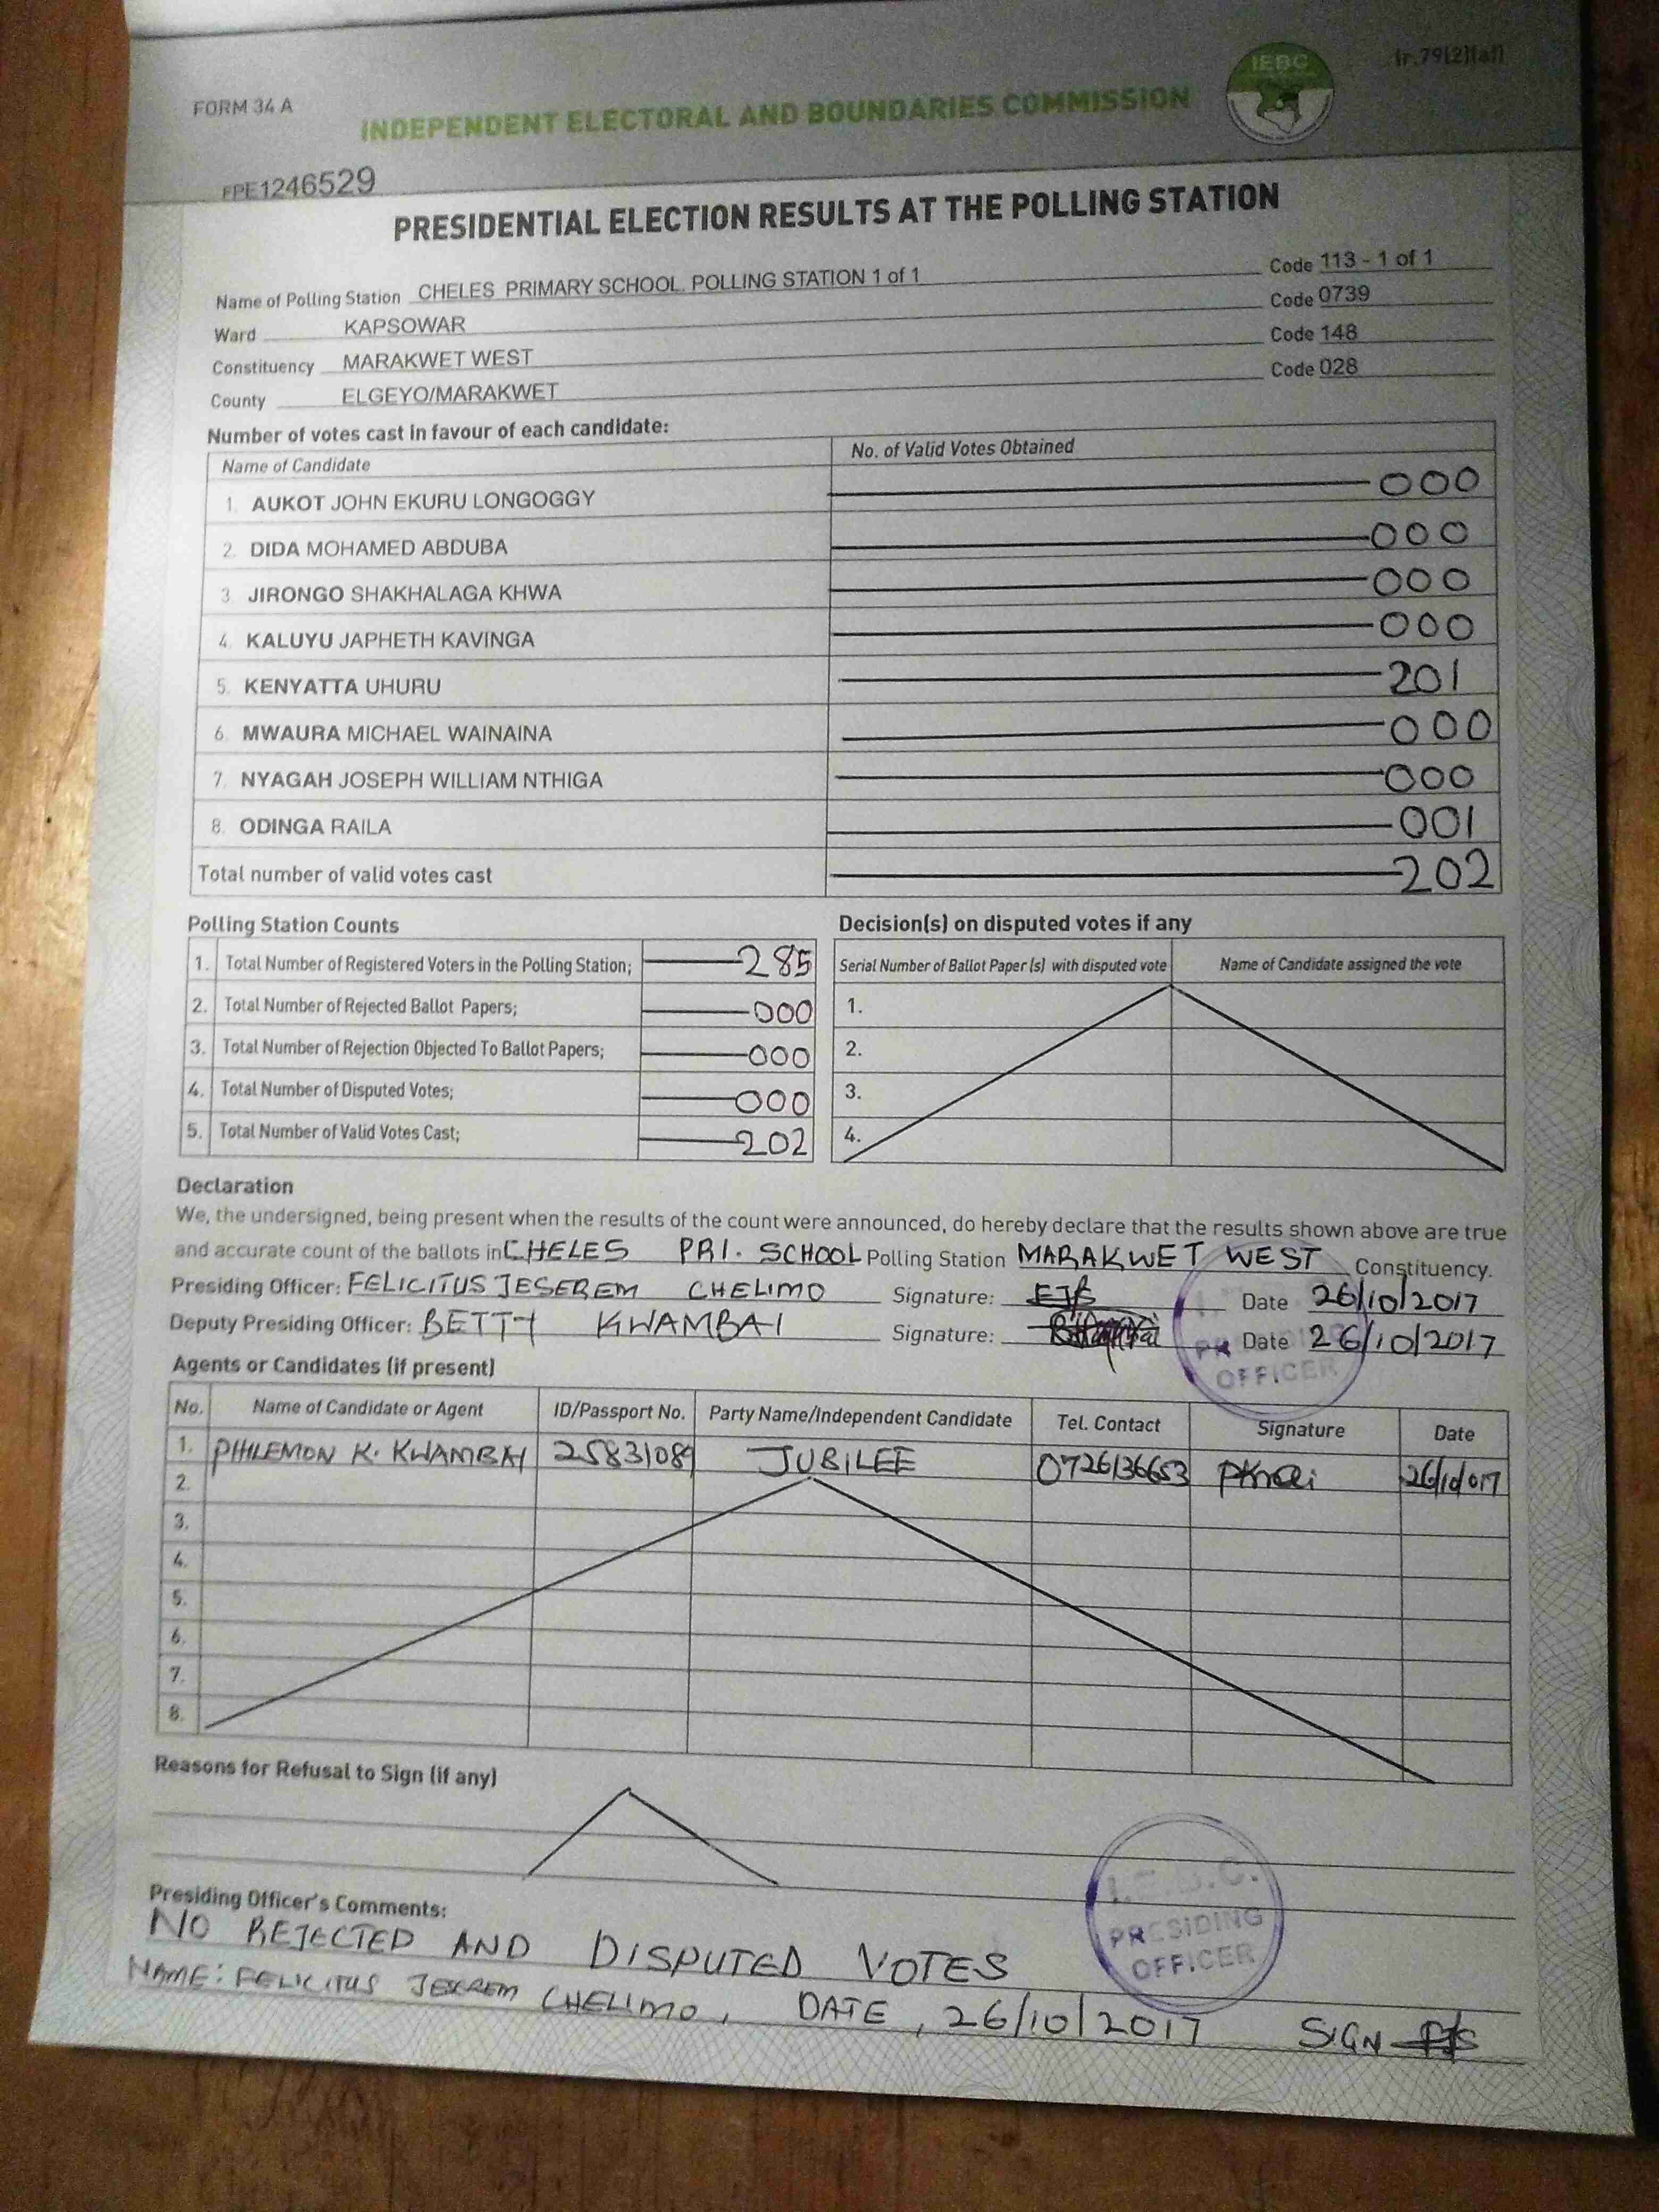 FORM 34 A
INDEPENDENT ELECTORAL AND BOUNDARIES COMMISSION
IEBC
(r.79(2)(a))
FPE1246529
PRESIDENTIAL ELECTION RESULTS AT THE POLLING STATION
Name of Polling Station CHELES PRIMARY SCHOOL POLLING STATION 1 of 1 Code 113 - 1 of 1
Ward KAPSOWAR Code 0739
Constituency MARAKWET WEST Code 148
County ELGEYO/MARAKWET Code 028
Number of votes cast in favour of each candidate:
Name of Candidate No. of Valid Votes Obtained
1. AUKOT JOHN EKURU LONGOGGY 000
2. DIDA MOHAMED ABDUBA 000
3. JIRONGO SHAKHALAGA KHWA 000
4. KALUYU JAPHETH KAVINGA 000
5. KENYATTA UHURU 201
6. MWAURA MICHAEL WAINAINA 000
7. NYAGAH JOSEPH WILLIAM NTHIGA 000
8. ODINGA RAILA 001
Total number of valid votes cast 202
Polling Station Counts
1. Total Number of Registered Voters in the Polling Station; 285
2. Total Number of Rejected Ballot Papers; 000
3. Total Number of Rejection Objected To Ballot Papers; 000
4. Total Number of Disputed Votes; 000
5. Total Number of Valid Votes Cast; 202
Decision(s) on disputed votes if any
Serial Number of Ballot Paper (s) with disputed vote Name of Candidate assigned the vote
1.
2.
3.
4.
Declaration
We, the undersigned, being present when the results of the count were announced, do hereby declare that the results shown above are true
and accurate count of the ballots in CHELES PRI. SCHOOL Polling Station MARAKWET WEST Constituency.
Presiding Officer: FELICITUS JESEREM CHELIMO Signature: Date 26/10/2017
Deputy Presiding Officer: BETTY KWAMBAI Signature: Date 26/10/2017
PRESIDING
OFFICER
Agents or Candidates (if present)
No. Name of Candidate or Agent ID/Passport No. Party Name/Independent Candidate Tel. Contact Signature Date
1. PHILEMON K. KWAMBAI 25831089 JUBILEE 0726136653 26/10/017
2.
3.
4.
5.
6.
7.
8.
Reasons for Refusal to Sign (if any)
Presiding Officer's Comments:
NO REJECTED AND DISPUTED VOTES
NAME: FELICITUS JESEREM CHELIMO, DATE, 26/10/2017 SIGN
I.E.B.C.
PRESIDING
OFFICER